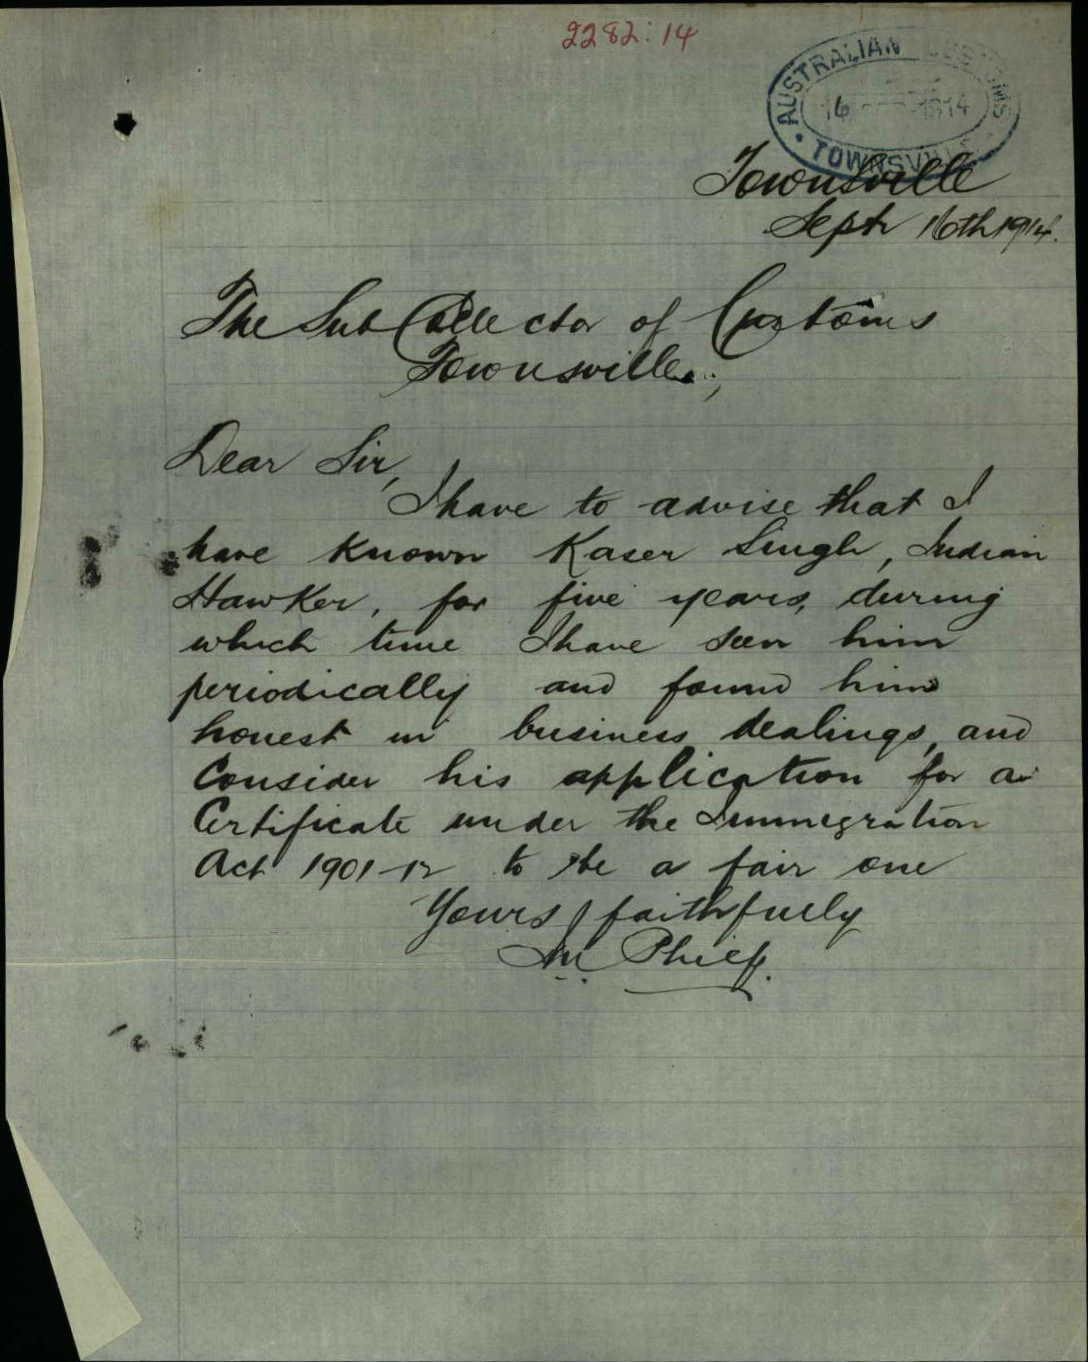 2282:14
AUSTRALIAN CUSTOMS
1914
TOWNSVILLE
Townsville
Septr 16th 1914.
The Sub Collector of Customs
Townsville,
Dear Sir,
I have to advise that I
have known Kaser Singh, Indian
Hawker, for five years, during
which time I have seen him
periodically and found him
honest in business dealings, and
Consider his application for a
Certificate under the Immigration
Act 1901-12 to be a fair one
Yours faithfully
Philp.